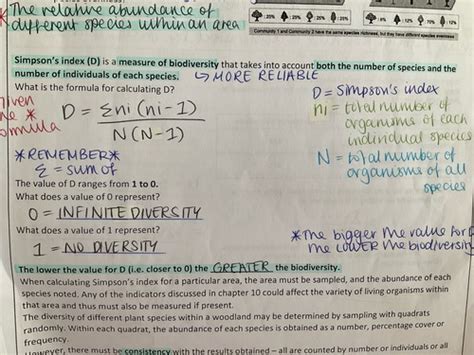 * The relative abundance of
different species within an area
20% 20% 20% 20% 20%
Community 1 and Community 2 have the same species richness, but they have different species evenness
Simpson's index (D) is a measure of biodiversity that takes into account both the number of species and the
number of individuals of each species. ↳ MORE RELIABLE
What is the formula for calculating D?
D = Σni (ni-1)
N (N-1)
D = Simpson's index
ni = total number of
organisms of each
individual species
N = total number of
organisms of all
species
*REMEMBER*
Σ = sum of
The value of D ranges from 1 to 0.
What does a value of 0 represent?
0 = INFINITE DIVERSITY
What does a value of 1 represent?
1 = NO DIVERSITY
*The bigger the value for D
the LOWER the biodiversity
The lower the value for D (i.e. closer to 0) the GREATER the biodiversity.
When calculating Simpson's index for a particular area, the area must be sampled, and the abundance of each
species noted. Any of the indicators discussed in chapter 10 could affect the variety of living organisms within
that area and thus must also be measured if present.
The diversity of different plant species within a woodland may be determined by sampling with quadrats
randomly. Within each quadrat, the abundance of each species is obtained as a number, percentage cover or
frequency.
However, there must be consistency with the results obtained – all are counted as number of individuals or